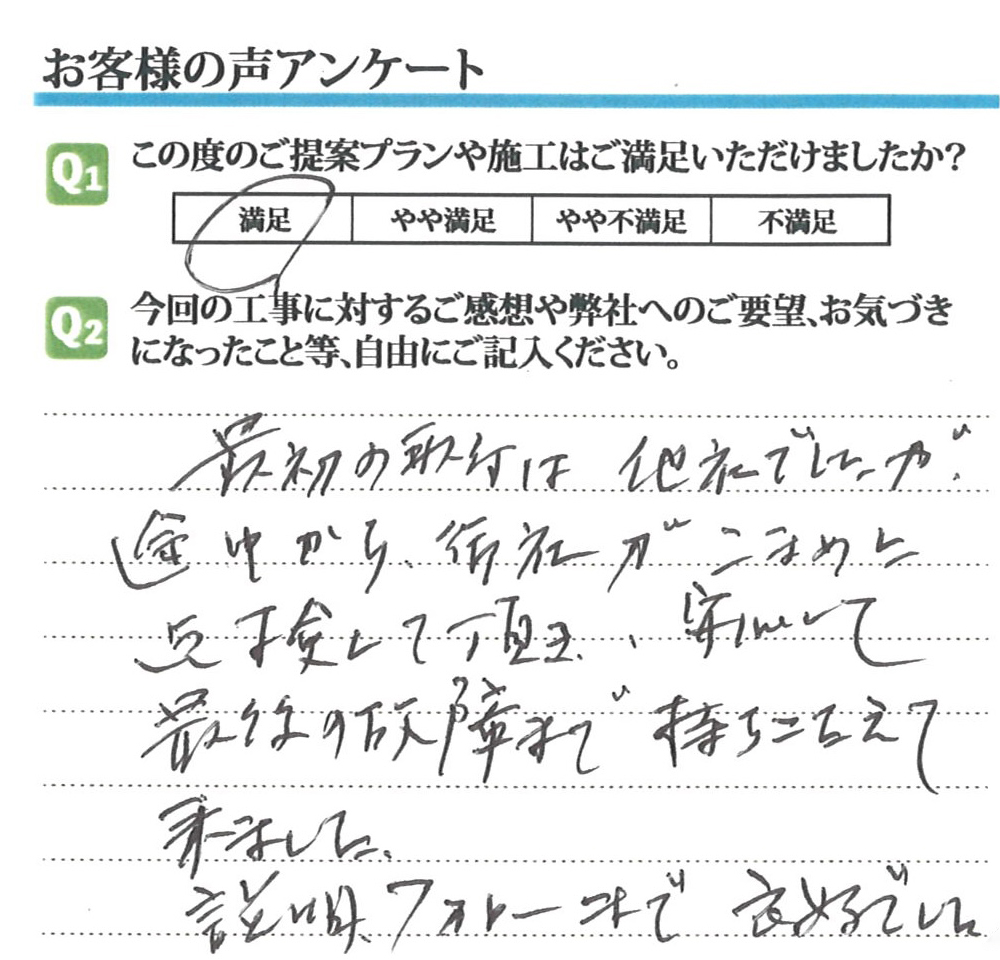 お客様の声アンケート
Q1 この度のご提案プランや施工はご満足いただけましたか?
満足 やや満足 やや不満足 不満足
Q2 今回の工事に対するご感想や弊社へのご要望、お気づき
になったこと等、自由にご記入ください。
最初の取付は他社でしたが、
途中から、御社がこまめに
点検して頂き、安心して
最後の故障まで持ちこたえて
来ました。
説明、フォローまで良好でした